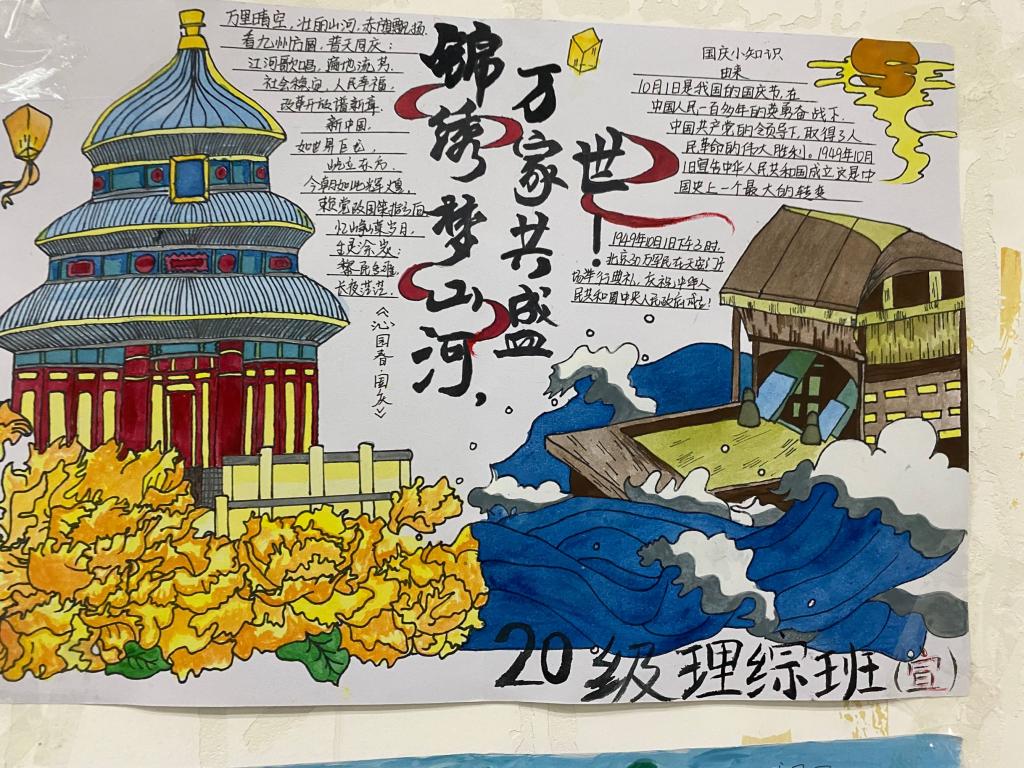 万里晴空,壮丽山河,赤旗飘扬.
看九州方圆,普天同庆;
江河歌唱,遍地流芳.
社会稳定,人民幸福,
改革开放谱新章.
新中国,
如世界巨龙,
屹立东方.
今朝如此辉煌,
赖党政国策指方向
忆
生灵涂炭;
黎民
长夜茫茫.
《沁园春·国庆》
锦绣梦山河,
万家共盛
世!
国庆小知识
由来
10月1日是我国的国庆节,在
中国人民一百多年的英勇奋战下.
中国共产党的领导下,取得了人
民革命的伟大胜利。1949年10月
1日宣告中华人民共和国成立这是中
国史上一个最大的转变
1949年10月1日下午3时.
北京30万军民在天安门广
场举行典礼,庆祝中华人
民共和国中央人民政府成立!
20级理综班(宣)